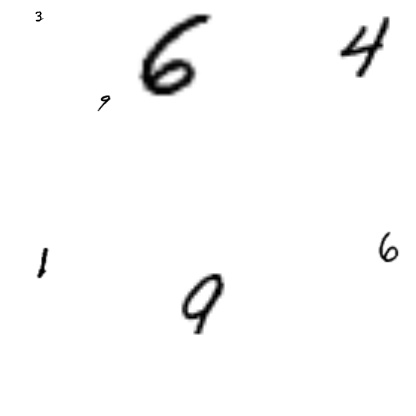 3 6 4
9
1 6
9